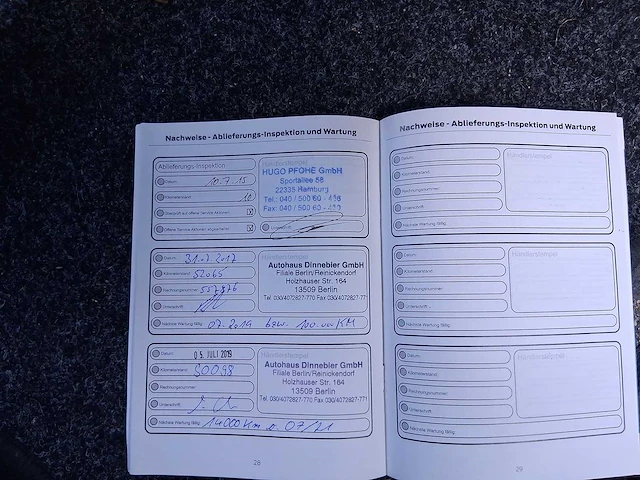 Nachweise - Ablieferungs-Inspektion und Wartung
Ablieferungs-Inspektion
Händlerstempel
Datum 10.7.15
Kilometerstand 10
Überprüft auf offene Service-Aktionen
Offene Service-Aktionen abgearbeitet
HUGO PFOHE GmbH
Sportallee 58
22335 Hamburg
Tel.: 040 / 500 60 -
Fax: 040 / 500 60 -
Unterschrift
Datum 31.07.2017
Kilometerstand 52065
Rechnungsnummer
Unterschrift
Nächste Wartung fällig 07.2019 bzw. 100.000 KM
Autohaus Dinnebier GmbH
Filiale Berlin/Reinickendorf
Holzhauser Str. 164
13509 Berlin
Tel. 030/4072827-770 Fax 030/4072827-771
Datum 05. JULI 2019
Kilometerstand
Rechnungsnummer
Unterschrift
Nächste Wartung fällig 07/21
Händlerstempel
Autohaus Dinnebier GmbH
Filiale Berlin/Reinickendorf
Holzhauser Str. 164
13509 Berlin
Tel. 030/4072827-770 Fax 030/4072827-771
26
Nachweise - Ablieferungs-Inspektion und Wartung
Datum
Kilometerstand
Rechnungsnummer
Unterschrift
Nächste Wartung fällig
Händlerstempel
Datum
Kilometerstand
Rechnungsnummer
Unterschrift
Nächste Wartung fällig
Händlerstempel
Datum
Kilometerstand
Rechnungsnummer
Unterschrift
Nächste Wartung fällig
Händlerstempel
29